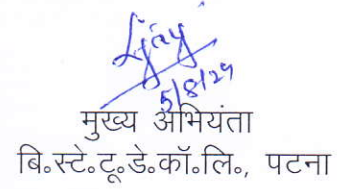 5/8/24
मुख्य अभियंता
बि॰स्टे॰टू॰डे॰कॉ॰लि॰, पटना